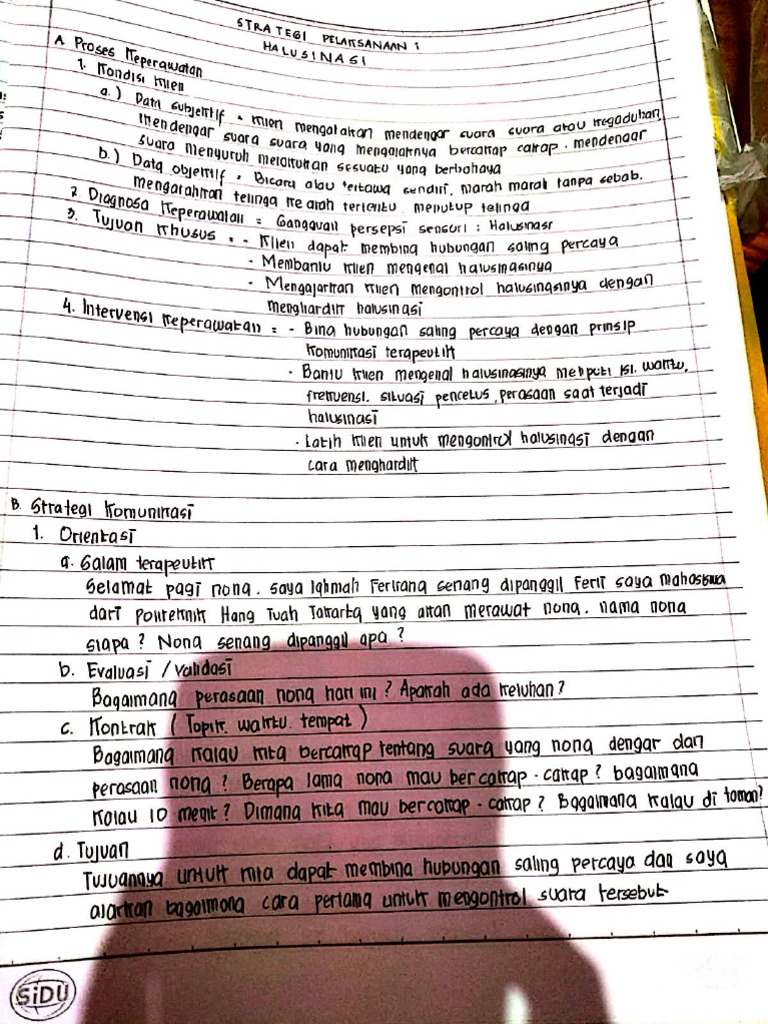 STRATEGI PELAKSANAAN 1
HALUSINASI
A. Proses Keperawatan
1. Kondisi Klien
a.) Data subjektif : Klien mengatakan mendengar suara suara atau kegaduhan,
mendengar suara suara yang mengajaknya bercakap cakap. mendengar
suara menyuruh melakukan sesuatu yang berbahaya
b.) Data objektif : Bicara atau tertawa sendiri, marah marah tanpa sebab.
mengarahkan telinga ke arah tertentu, menutup telinga
2. Diagnosa Keperawatan = Gangguan persepsi sensori : Halusinasi
3. Tujuan Khusus : - Klien dapat membina hubungan saling percaya
- Membantu klien mengenal halusinasinya
- Mengajarkan klien mengontrol halusinasinya dengan
menghardik halusinasi
4. Intervensi Keperawatan = - Bina hubungan saling percaya dengan prinsip
komunikasi terapeutik
- Bantu klien mengenal halusinasinya meliputi isi, waktu,
frekuensi, situasi pencetus, perasaan saat terjadi
halusinasi
- Latih klien untuk mengontrol halusinasi dengan
cara menghardik
B. Strategi Komunikasi
1. Orientasi
a. Salam terapeutik
Selamat pagi nona. saya Iqhmah Ferirana senang dipanggil Feri saya mahasiswa
dari politeknik Hang Tuah Jakarta yang akan merawat nona. nama nona
siapa? Nona senang dipanggil apa?
b. Evaluasi / validasi
Bagaimana perasaan nona hari ini? Apakah ada keluhan?
c. Kontrak (Topik. waktu. tempat)
Bagaimana kalau kita bercakap tentang suara yang nona dengar dan
perasaan nona? Berapa lama nona mau bercakap-cakap? bagaimana
kalau 10 menit? Dimana kita mau bercakap-cakap? Bagaimana kalau di taman?
d. Tujuan
Tujuannya untuk kita dapat membina hubungan saling percaya dan saya
ajarkan bagaimana cara pertama untuk mengontrol suara tersebut
SiDU